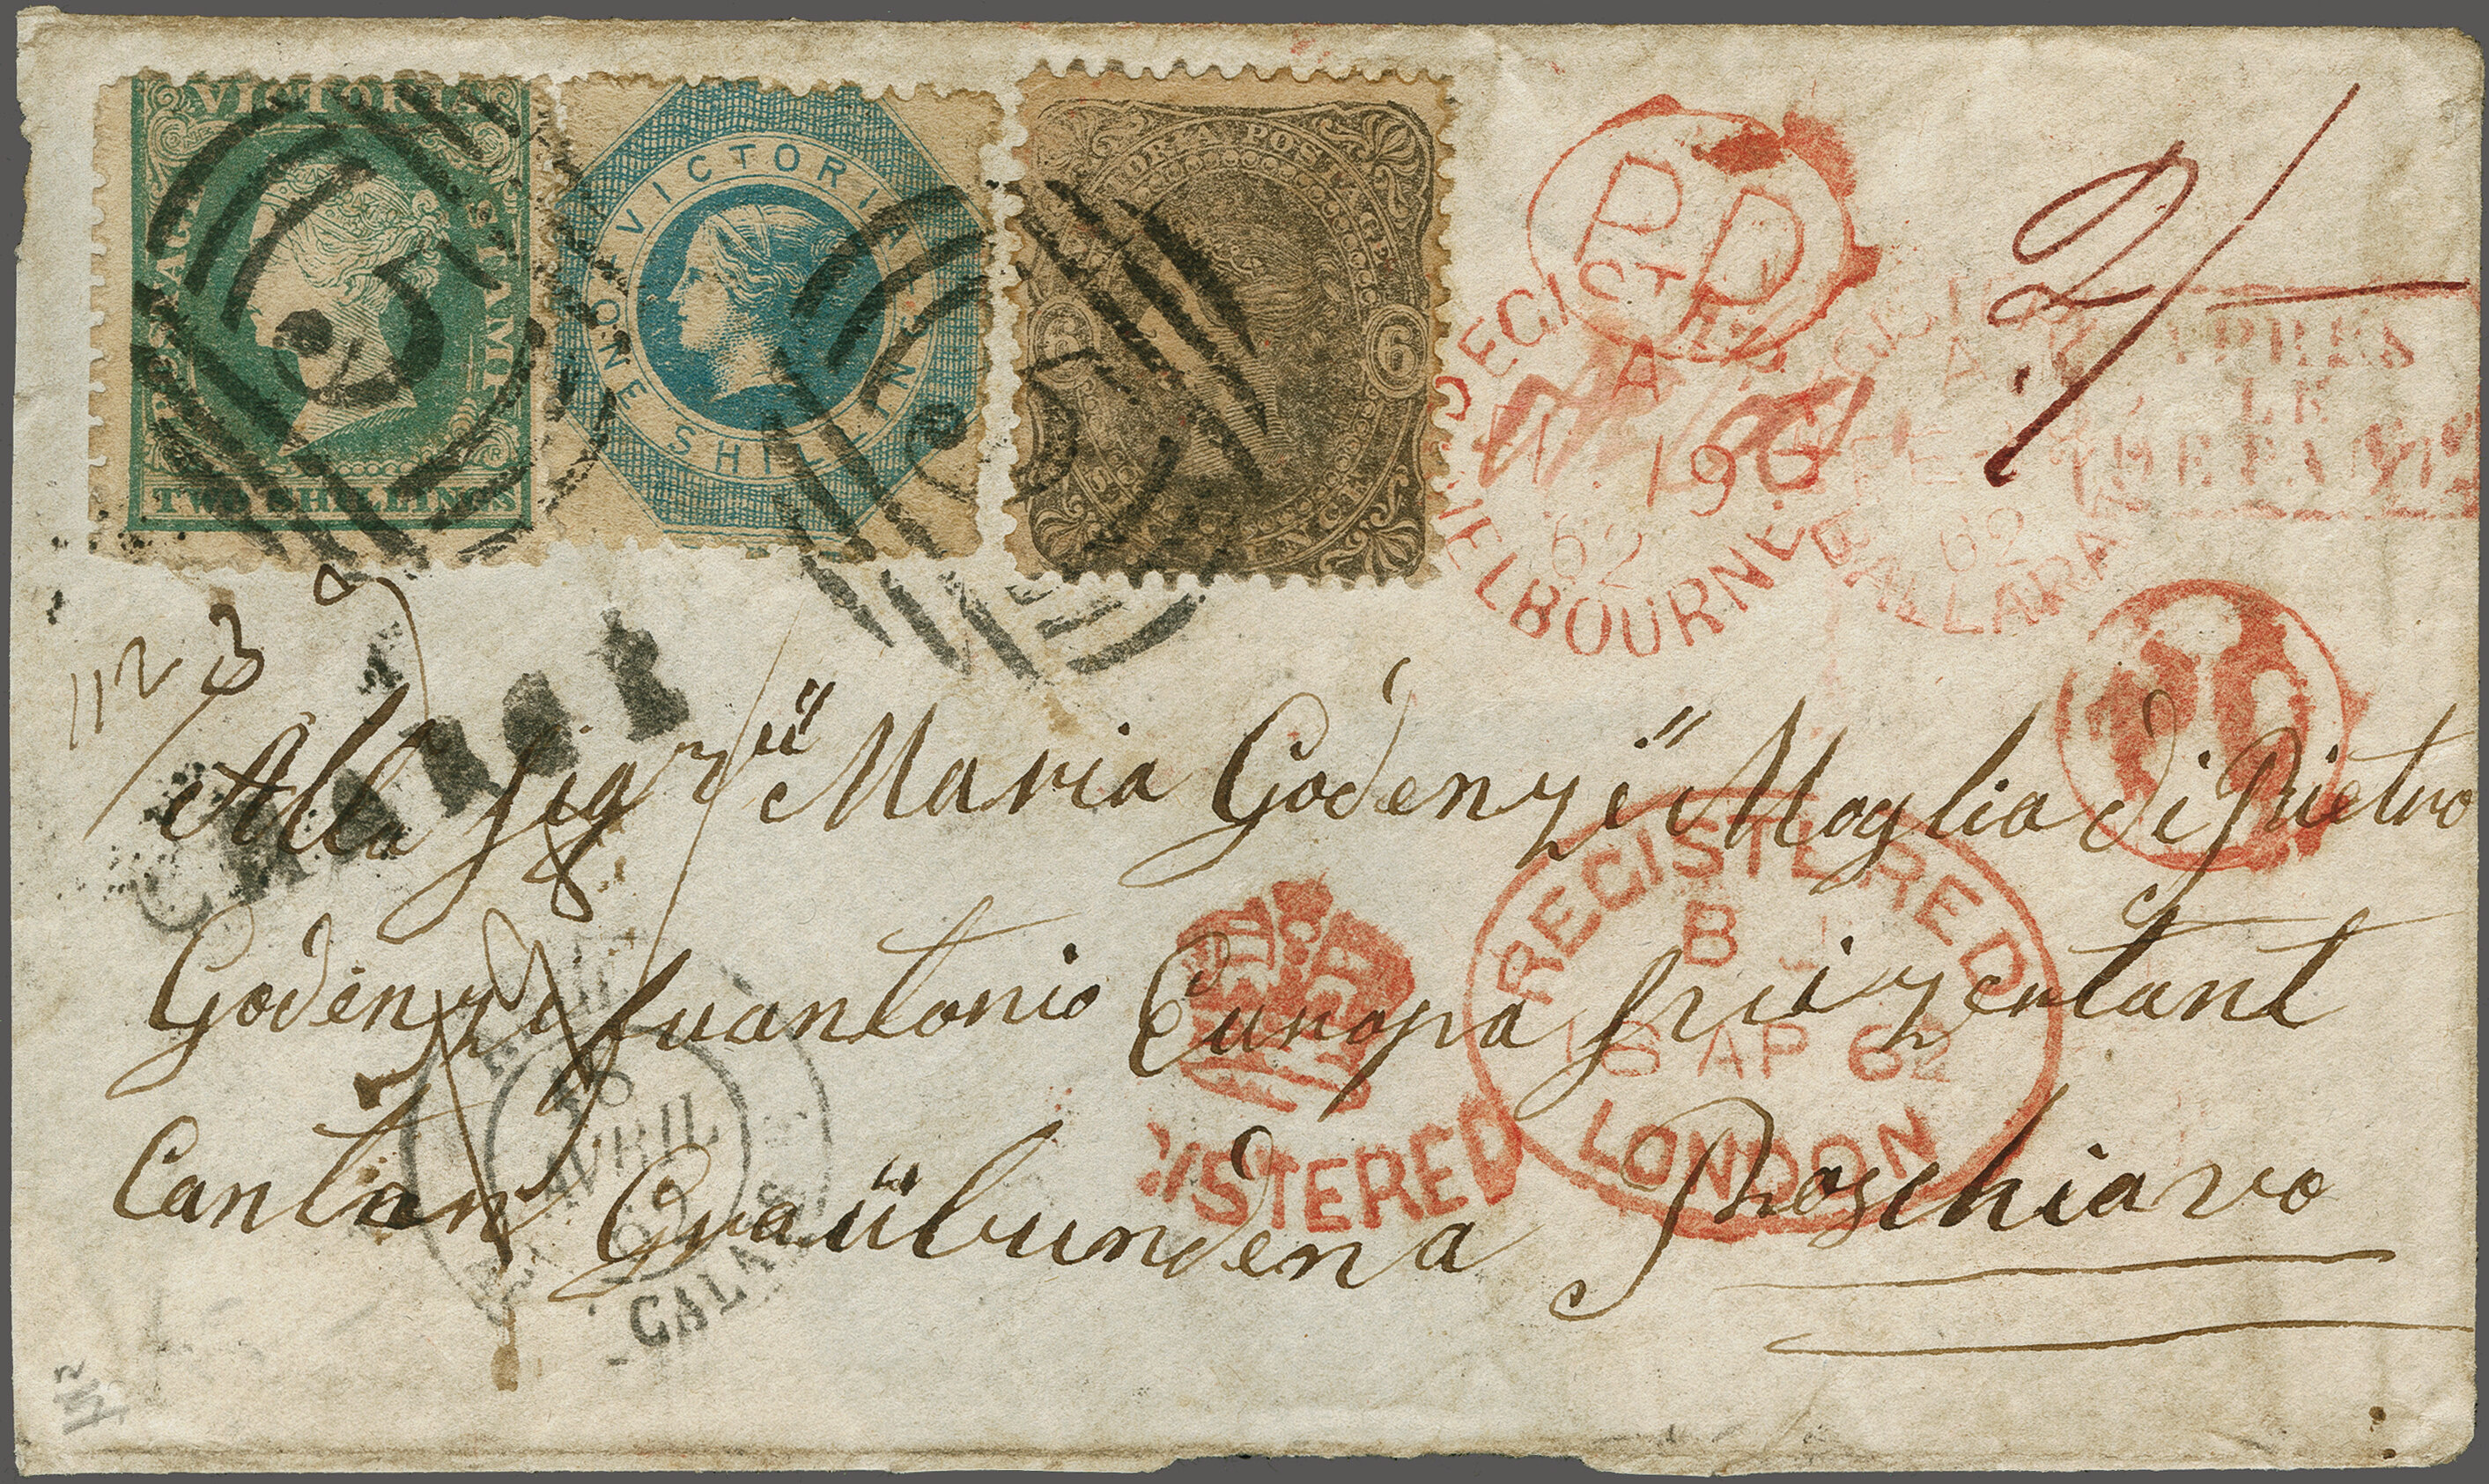 VICTORIA
POSTAGE STAMP
TWO SHILLINGS
VICTORIA
ONE SHILLING
VICTORIA POSTAGE
6 6
PD
REGISTERED
A
19
62
MELBOURNE
62
BALLARAT
2/
APRES
LE
DEPART
1123
CHARGÉ
Alla Sigra Maria Godenzi Moglia di Pietro
Godenzi fuantonio Europa Sviizentant
Canton Graübündena Poschiavo
REGISTERED
B J
16 AP 62
LONDON
ISTERED
16
AVRIL
62
CALAIS